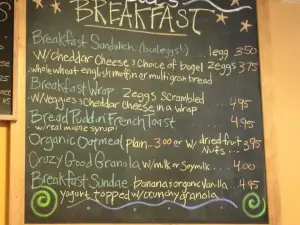 BREAKFAST
Breakfast Sandwich (local eggs!) ... 1egg 3.50
w/cheddar cheese & choice of bagel 2eggs 3.75
whole wheat english muffin or multigrain bread
Breakfast Wrap.. 2 eggs Scrambled
w/veggies & cheddar cheese in a wrap ... 4.95
Bread Puddin French Toast ... 4.95
w/real maple syrup
Organic Oatmeal plain ~ 3.00 or w/ dried fruit 3.95
Nuts...
Crazy Good Granola w/milk or Soymilk ... 4.00
Breakfast Sundae banana & organic Vanilla.. 4.95
yogurt topped w/crunchy granola